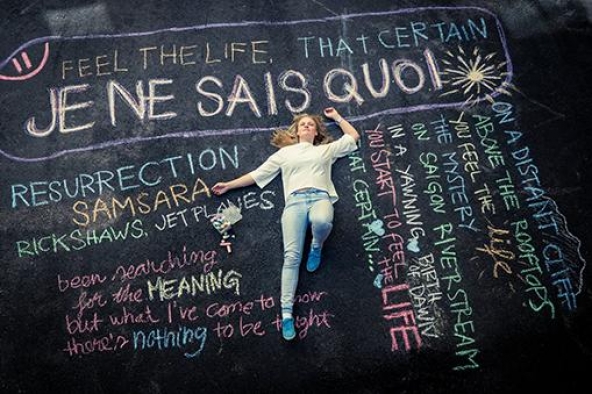 FEEL THE LIFE, THAT CERTAIN
JE NE SAIS QUOI
RESURRECTION
SAMSARA
RICKSHAWS, JET PLANES
been searching
for the MEANING
but what I've come to know
there's nothing to be taught
ON A DISTANT CLIFF
ABOVE THE ROOFTOPS
YOU FEEL THE life
THE MYSTERY
ON SAIGON RIVERSTREAM
IN A YAWNING BIRTH OF DAWN
YOU START TO FEEL the LIFE
AT CERTAIN...